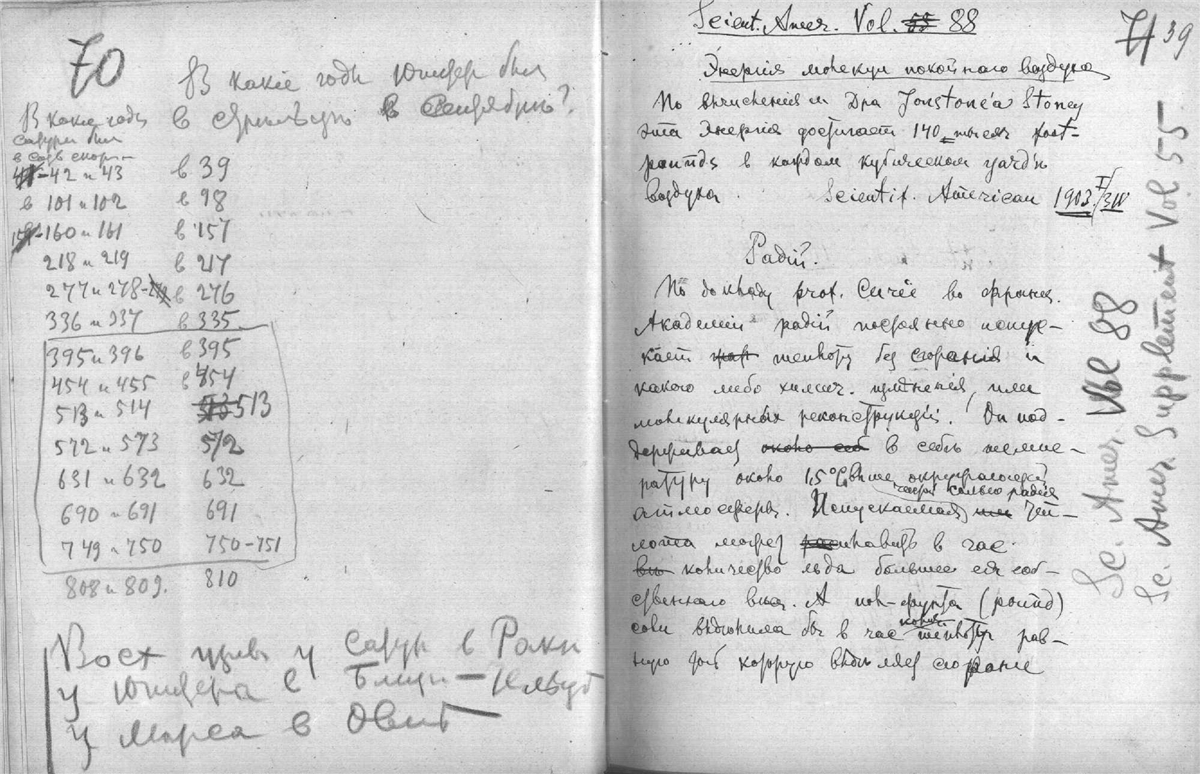 70
В какіе годы Юпитеръ былъ
в Стрельцѣ в Сентябрѣ?
В какіе годы
Сатурн был
в Скорп-
42 и 43 в 39
в 101 и 102 в 98
160 и 161 в 157
218 и 219 в 217
277 и 278 в 276
336 и 337 в 335
395 и 396 в 395
454 и 455 в 454
513 и 514 513
572 и 573 572
631 и 632 632
690 и 691 691
749 и 750 750-751
808 и 809. 810
у Сатур в Раки
у Юпитера в Близн-
у Марса в Овнѣ
Scient. Amer. Vol. 55 88
71 39
Энергія молекул покойнаго воздуха
По вычисленіям Dra Jonstone'a Stoney
эта энергія достигает 140 тысяч foot-
pounds в каждом кубическом yard'ѣ
воздуха. Scientif. American 1903
Радій.
По докладу prof. Curie во Франц.
Академіи радій постоянно испус-
кает теплоту без сгоранія и
какого либо химич. измѣненія, или
молекулярных реконструкцій! Он под-
держивает около себ в себѣ темпе-
ратуру около 1,5°C выше окружающей
атмосферы. Испускаемая теп-
лота может расплавить в час
количество льда большее его соб-
ственнаго вѣса. А пол-фунта (pound)
соли выдѣлила бы в час теплоту рав-
ную той которую выдѣляет сгораніе
Sc. Amer. Vol 88
Sc. Amer. Supplement Vol 55